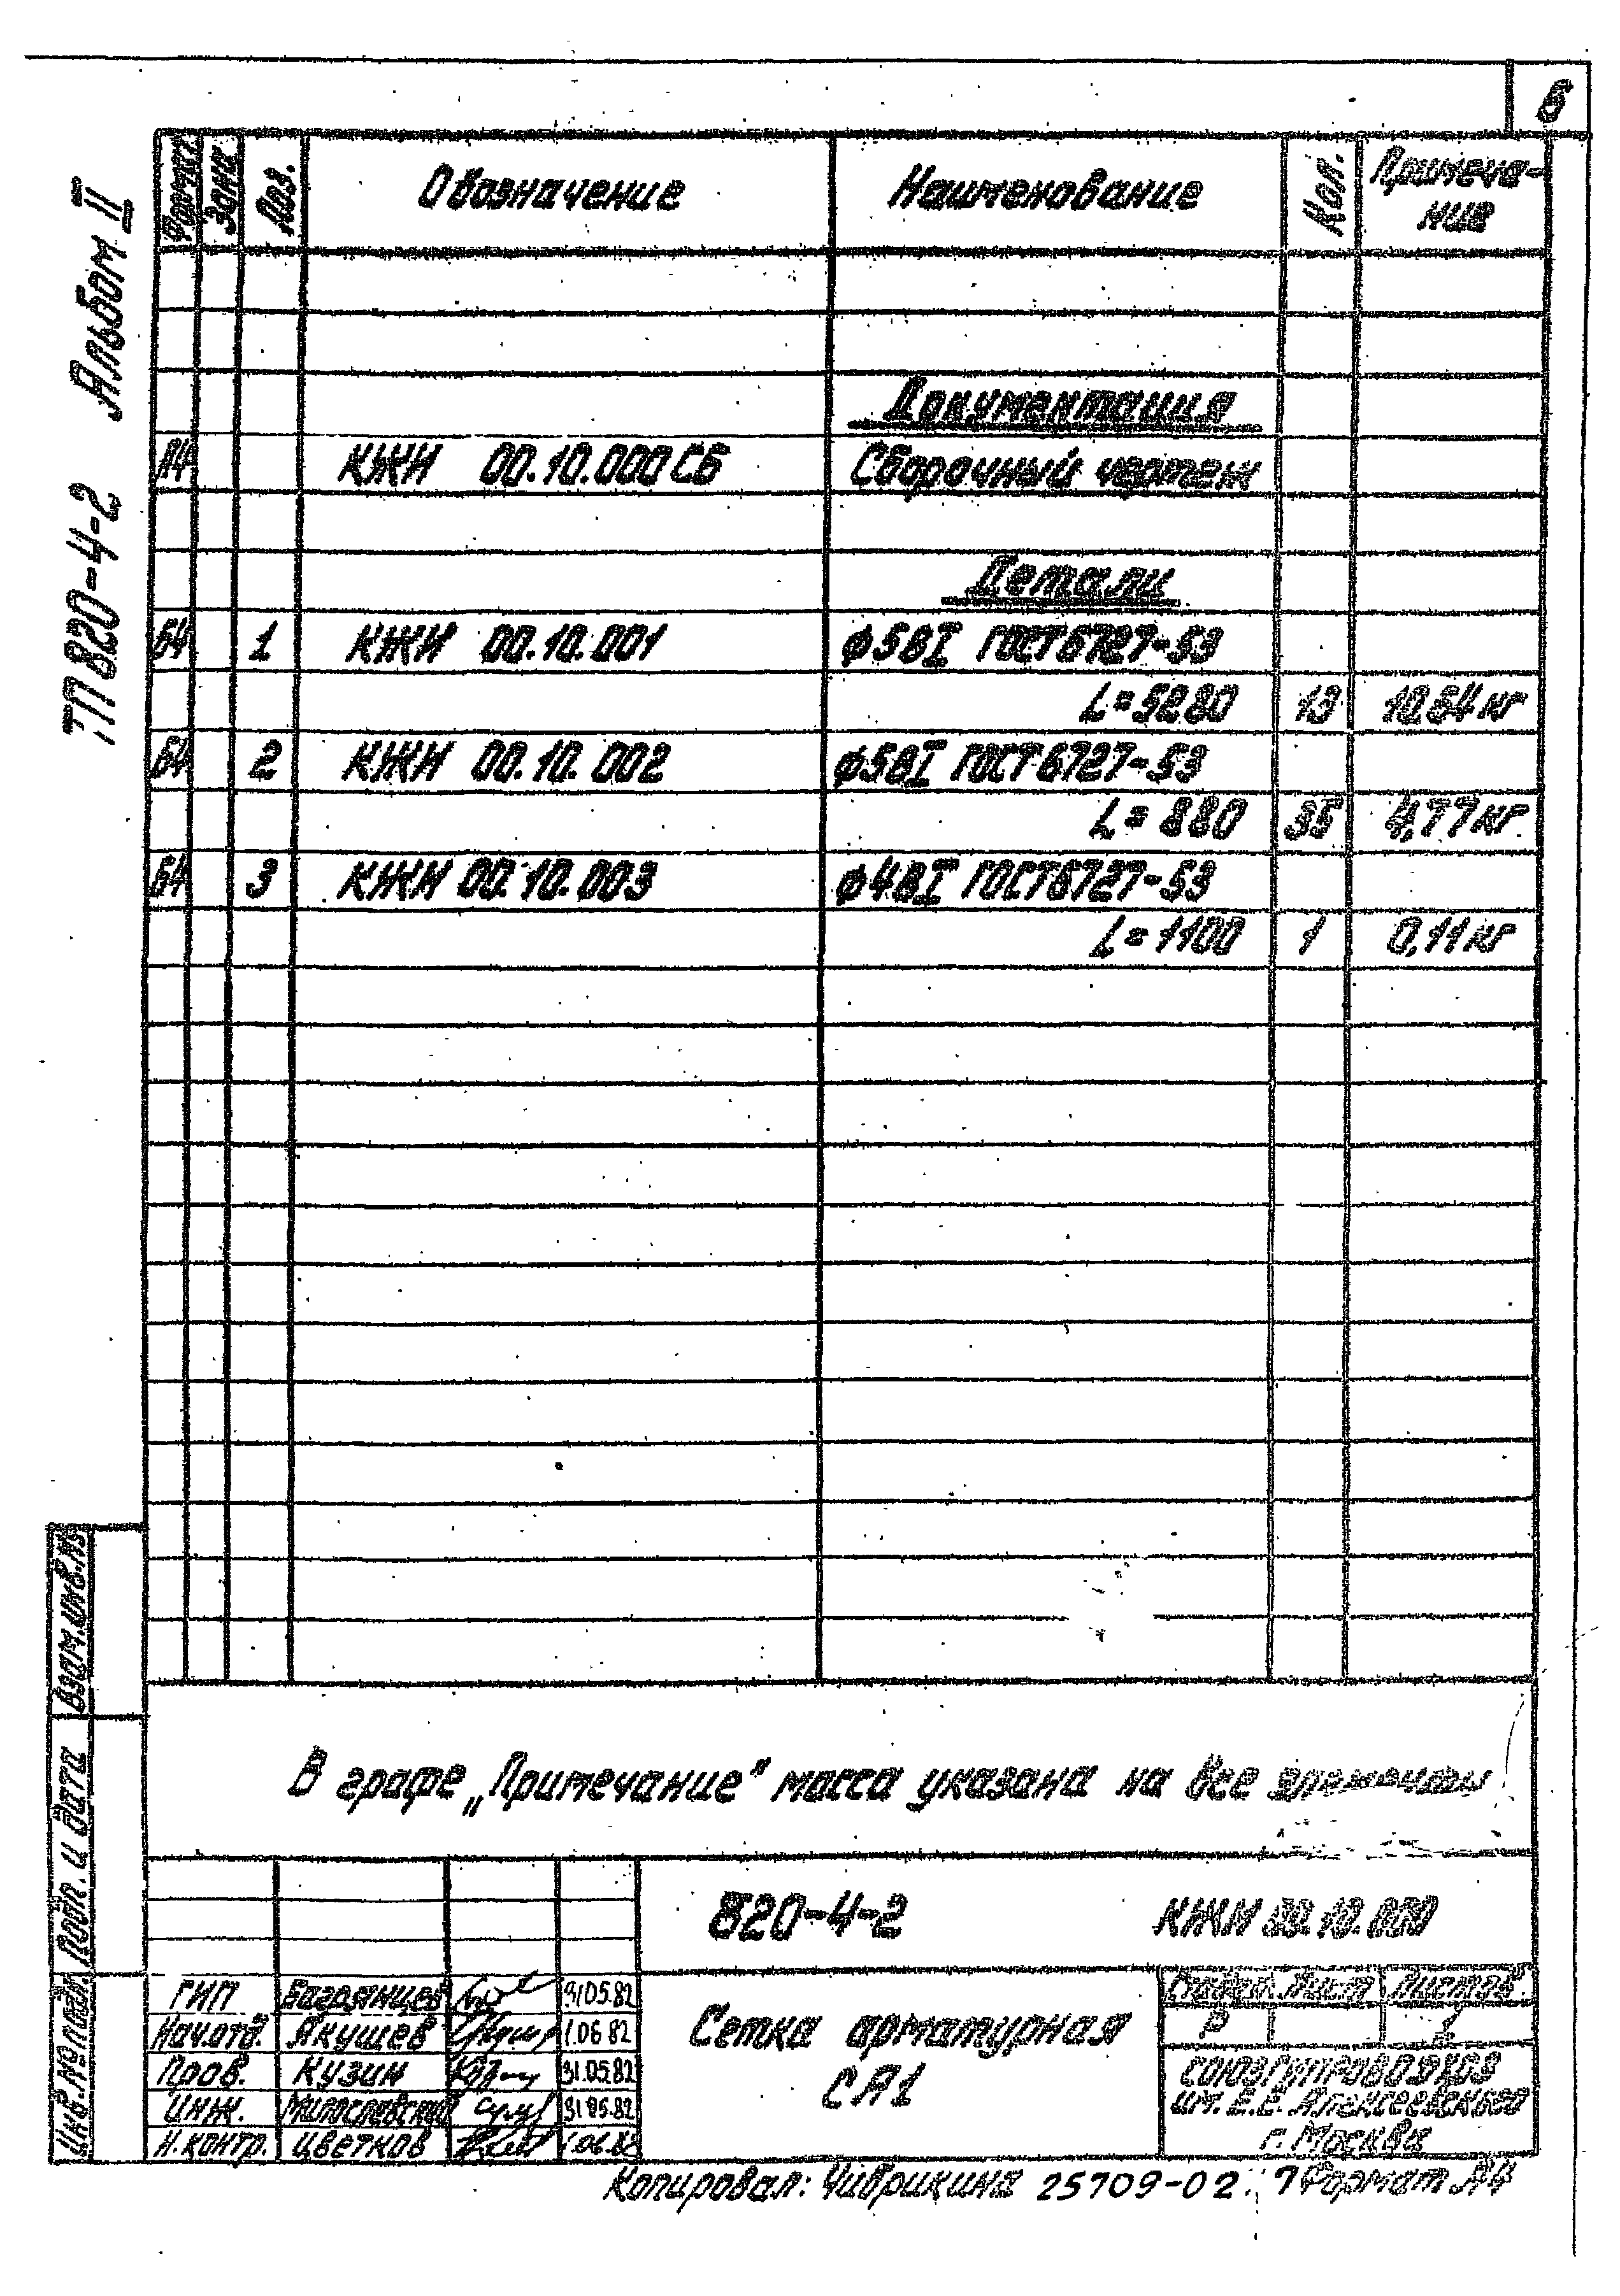 6
ТП 820-4-2 Альбом II
Формат Зона Поз. Обозначение Наименование Кол. Примеча-
ние
Документация
А4 КЖИ 00.10.000 СБ Сборочный чертеж
Детали
Б4 1 КЖИ 00.10.001 ф5ВI ГОСТ 6727-53
L=5280 13 10,54 кг
Б4 2 КЖИ 00.10.002 ф5ВI ГОСТ 6727-53
L=880 35 4,77 кг
Б4 3 КЖИ 00.10.003 ф4ВI ГОСТ 6727-53
L=1100 1 0,11 кг
В графе „Примечание" масса указана на все элементы
Взам.инв.№
Подп. и дата
Инв.№ подл.
820-4-2 КЖИ 00.10.000
ГИП Багрянцев 31.05.82
Нач.отд. Якушев 1.06.82
Пров. Кузин 31.05.82
Инж. Милославский 31.05.82
Н.контр. Цветков 1.06.82
Сетка арматурная
СА1
Стадия Лист Листов
Р 1
СОЮЗГИПРОВОДХОЗ
им. Е.Е. Алексеевского
г. Москва
Копировал: Чибрикина 25709-02 7 Формат А4